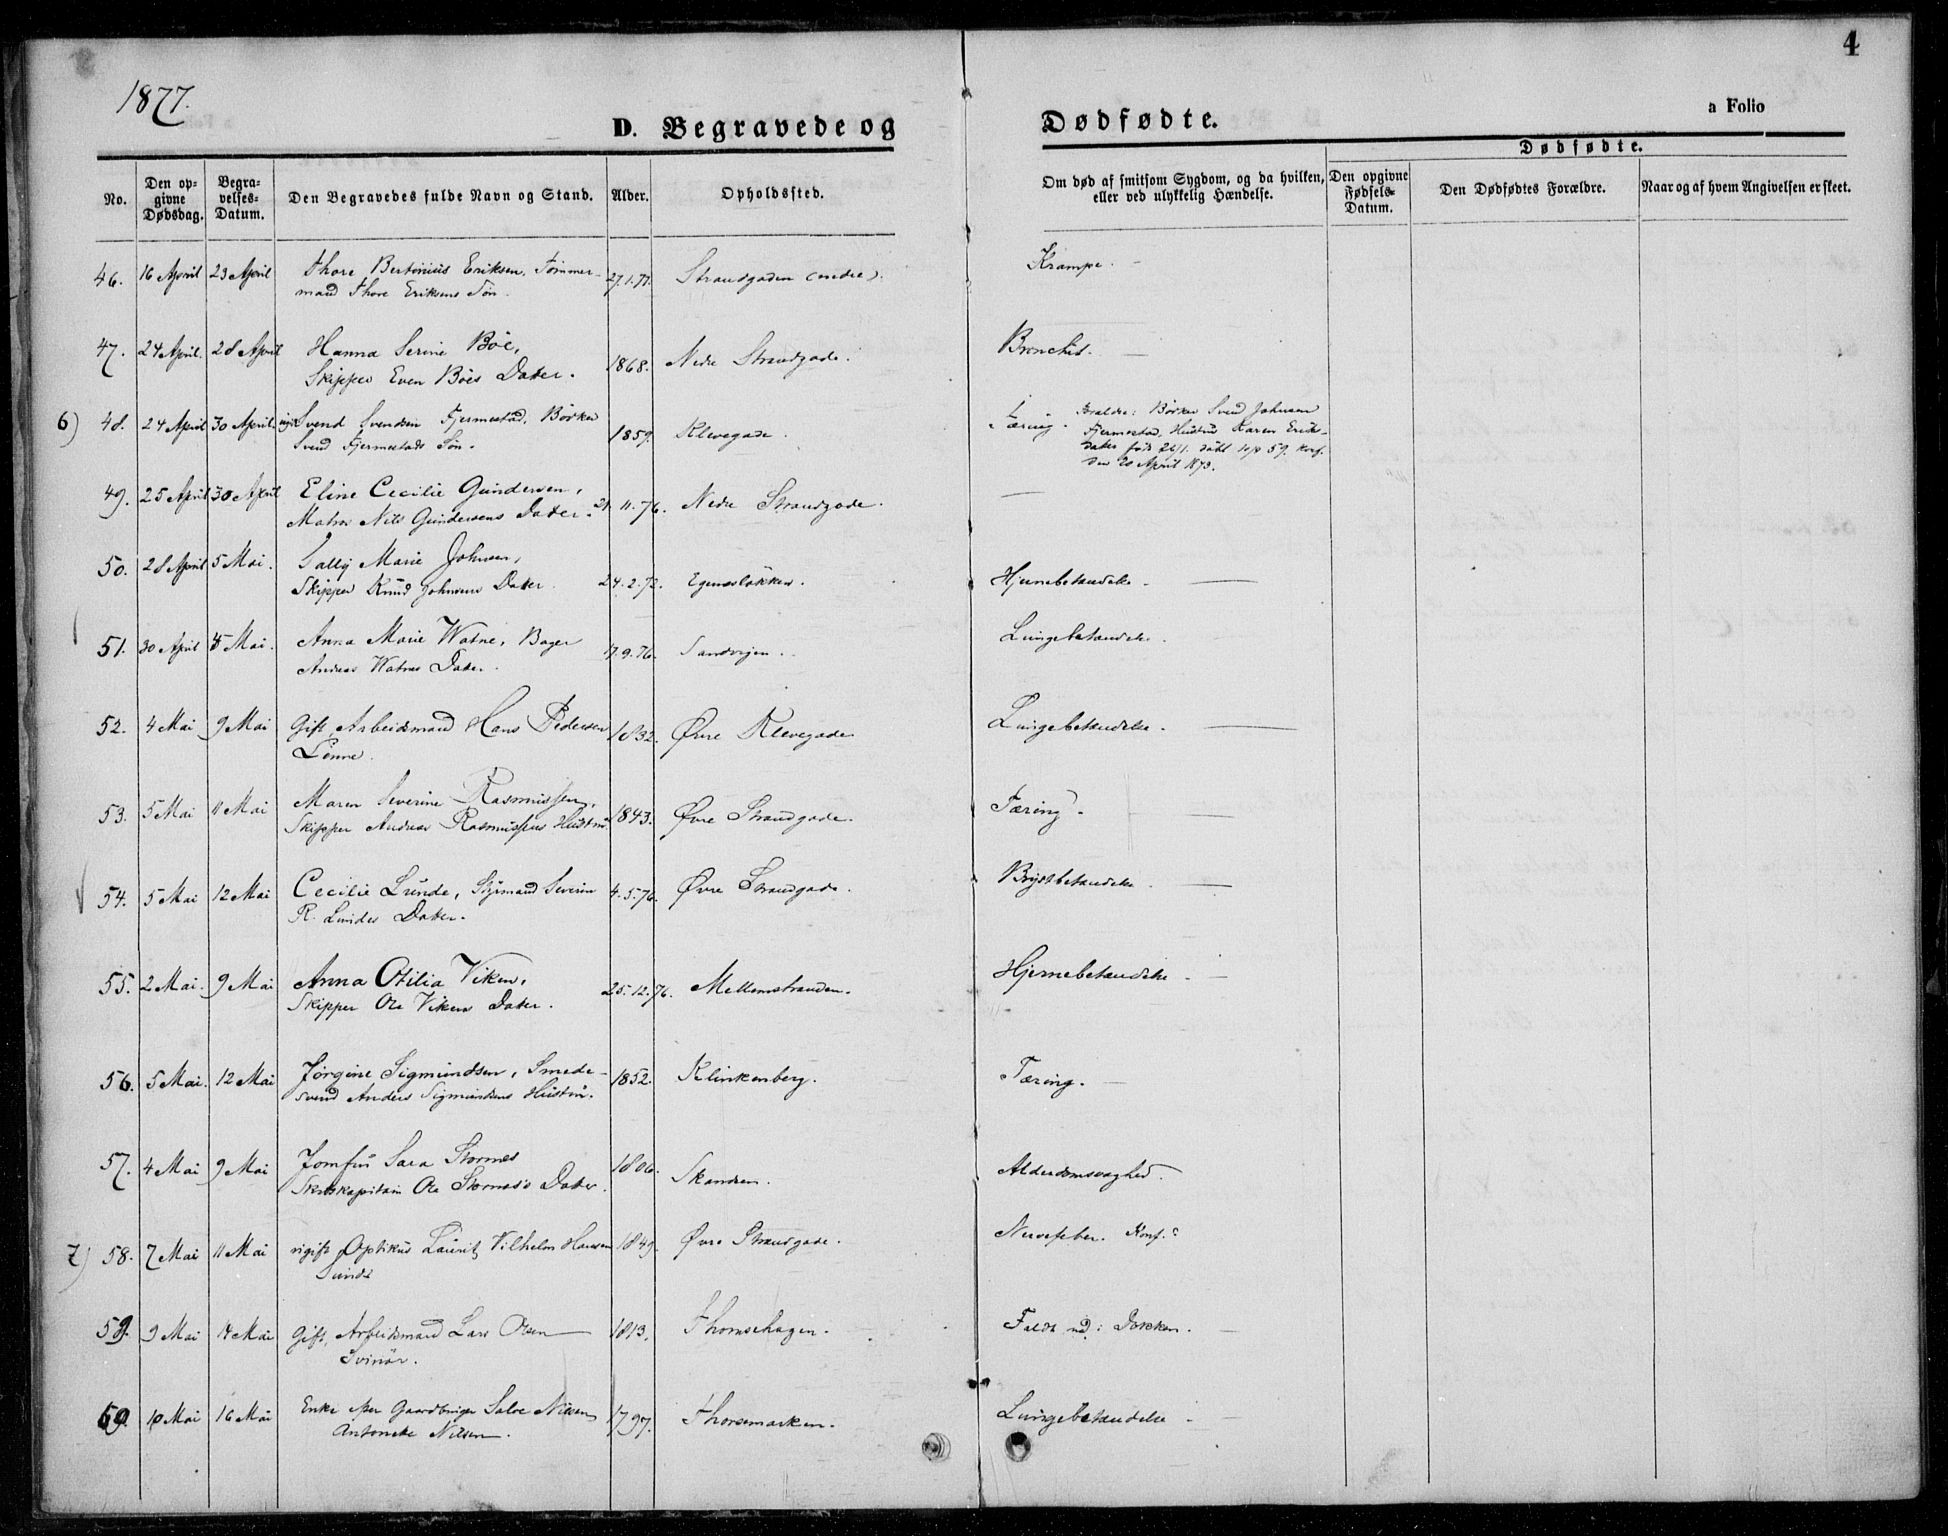 1877.
4
a Folio
D. Begravede og Dødfødte.
Dødfødte.
No.
Den opgivne Dødsdag.
Begravelses-Datum.
Den Begravedes fulde Navn og Stand.
Alder.
Opholdssted.
Om død af smitsom Sygdom, og da hvilken, eller ved ulykkelig Hændelse.
Den opgivne Fødsels-Datum.
Den Dødfødtes Forældre.
Naar og af hvem Angivelsen er skeet.
46. 16 April 23 April Thore Bertinius Eriksen, Tømmer- 27.1.77. Strandgaden (nedre). Krampe.
mand Thore Eriksens Søn.
47. 24 April. 28 April Hanna Serine Böe, 1868. Nedre Strandgade. Bronchit.
Skipper Even Böes Datter.
6) 48. 24 April 30 April. ugift Svend Svendsen Fjermestad, Bödker 1859. Klevegade. Tæring. Foraldre: Bödker Svend Johnsen
Svend Fjermestads Søn. Fjermestad, Hustru Karen Eriks-
datter född 26/1. döbt 10/4 59. Konf.
den 20 April 1873.
49. 25 April 30 April Eline Cecilie Gundersen, 21.11.76. Nedre Strandgade.
Matros Nils Gundersens Datter.
50. 28 April 5 Mai. Sally Marie Johnsen, 24.2.72. Egenesløkken. Hjernebetændelse.
Skipper Knud Johnsens Datter.
51. 30 April 5 Mai. Anna Marie Watne, Bager 17.9.76. Sandvigen. Lungebetændelse.
Andreas Watnes Datter.
52. 4 Mai 9 Mai Gift, Arbeidsmand Hans Pedersen 1832. Øvre Klevegade Lungebetændelse.
Lönne.
53. 5 Mai 11 Mai Maren Severine Rasmussen, 1843. Øvre Strandgade. Tæring.
Skipper Andreas Rasmussens Hustru
54. 5 Mai 12 Mai Cecilie Lunde, Styrmand Severin 4.5.76. Øvre Strandgade. Brystbetændelse.
R. Lundes Datter.
55. 2 Mai. 9 Mai Anna Otilia Viken, 25.12.76. Mellemstranden. Hjernebetændelse
Skipper Ole Vikens Datter.
56. 5 Mai. 12 Mai Jörgine Sigmundsen, Smede- 1852. Klinkenberg. Tæring.
svend Anders Sigmundsens Hustru.
57. 4 Mai 9 Mai Jomfru Sara Stornes 1806. Skandsen. Alderdomssvaghed.
Skibskapitain Ole Stornes's Datter.
7) 58. 7 Mai 11 Mai ugift, Optikus Lauritz Vilhelm Hansen 1849. Øvre Strandgade. Nervefeber. Konf.
Sunde
59. 9 Mai 14 Mai Gift, Arbeidsmand Lars Olsen 1813. Thomsehagen. Faldt ned i Dokken.
Svinör.
60. 10 Mai 16 Mai Enke efter Gaardbruger Salve Nilsen 1797. Thorsmarken. Lungebetændelse
Antonette Nilsen.